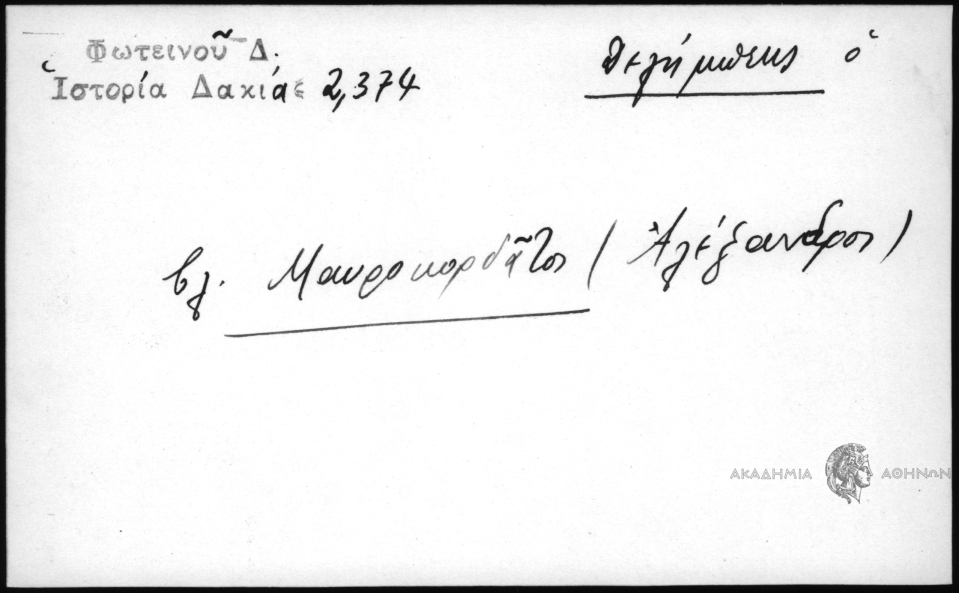 Φωτεινοῦ Δ.
Ἱστορία Δακίας 2,374
Δελήμπεης ὁ
βλ. Μαυροκορδᾶτος (Ἀλέξανδρος)
ΑΚΑΔΗΜΙΑ ΑΘΗΝΩΝ